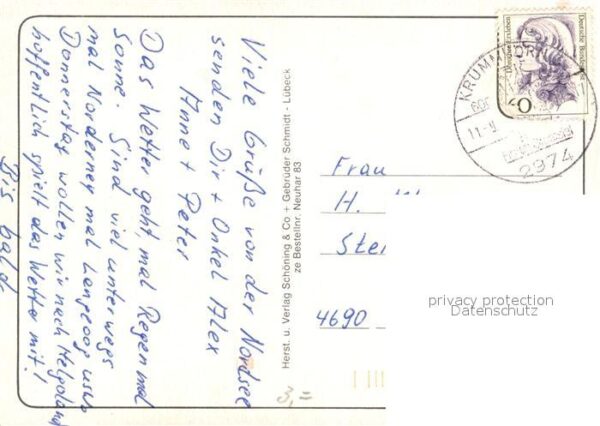 Viele Grüße von der Nordsee
senden Dir + Onkel Alex
Anne + Peter
Das Wetter geht, mal Regen mal
Sonne. Sind viel unterwegs
mal Norderney mal Langeoog usw.
Donnerstag wollen wir nach Helgoland
hoffentlich spielt das Wetter mit!
Bis bald
Herst. u. Verlag Schöning & Co + Gebrüder Schmidt - Lübeck
ze Bestellnr. Neuhar 83
Deutsche Bundespost
Dorothea Erxleben
KRUMMHÖRN
11.-9
2974
Frau
H.
Stei
4690
privacy protection
Datenschutz
3,=